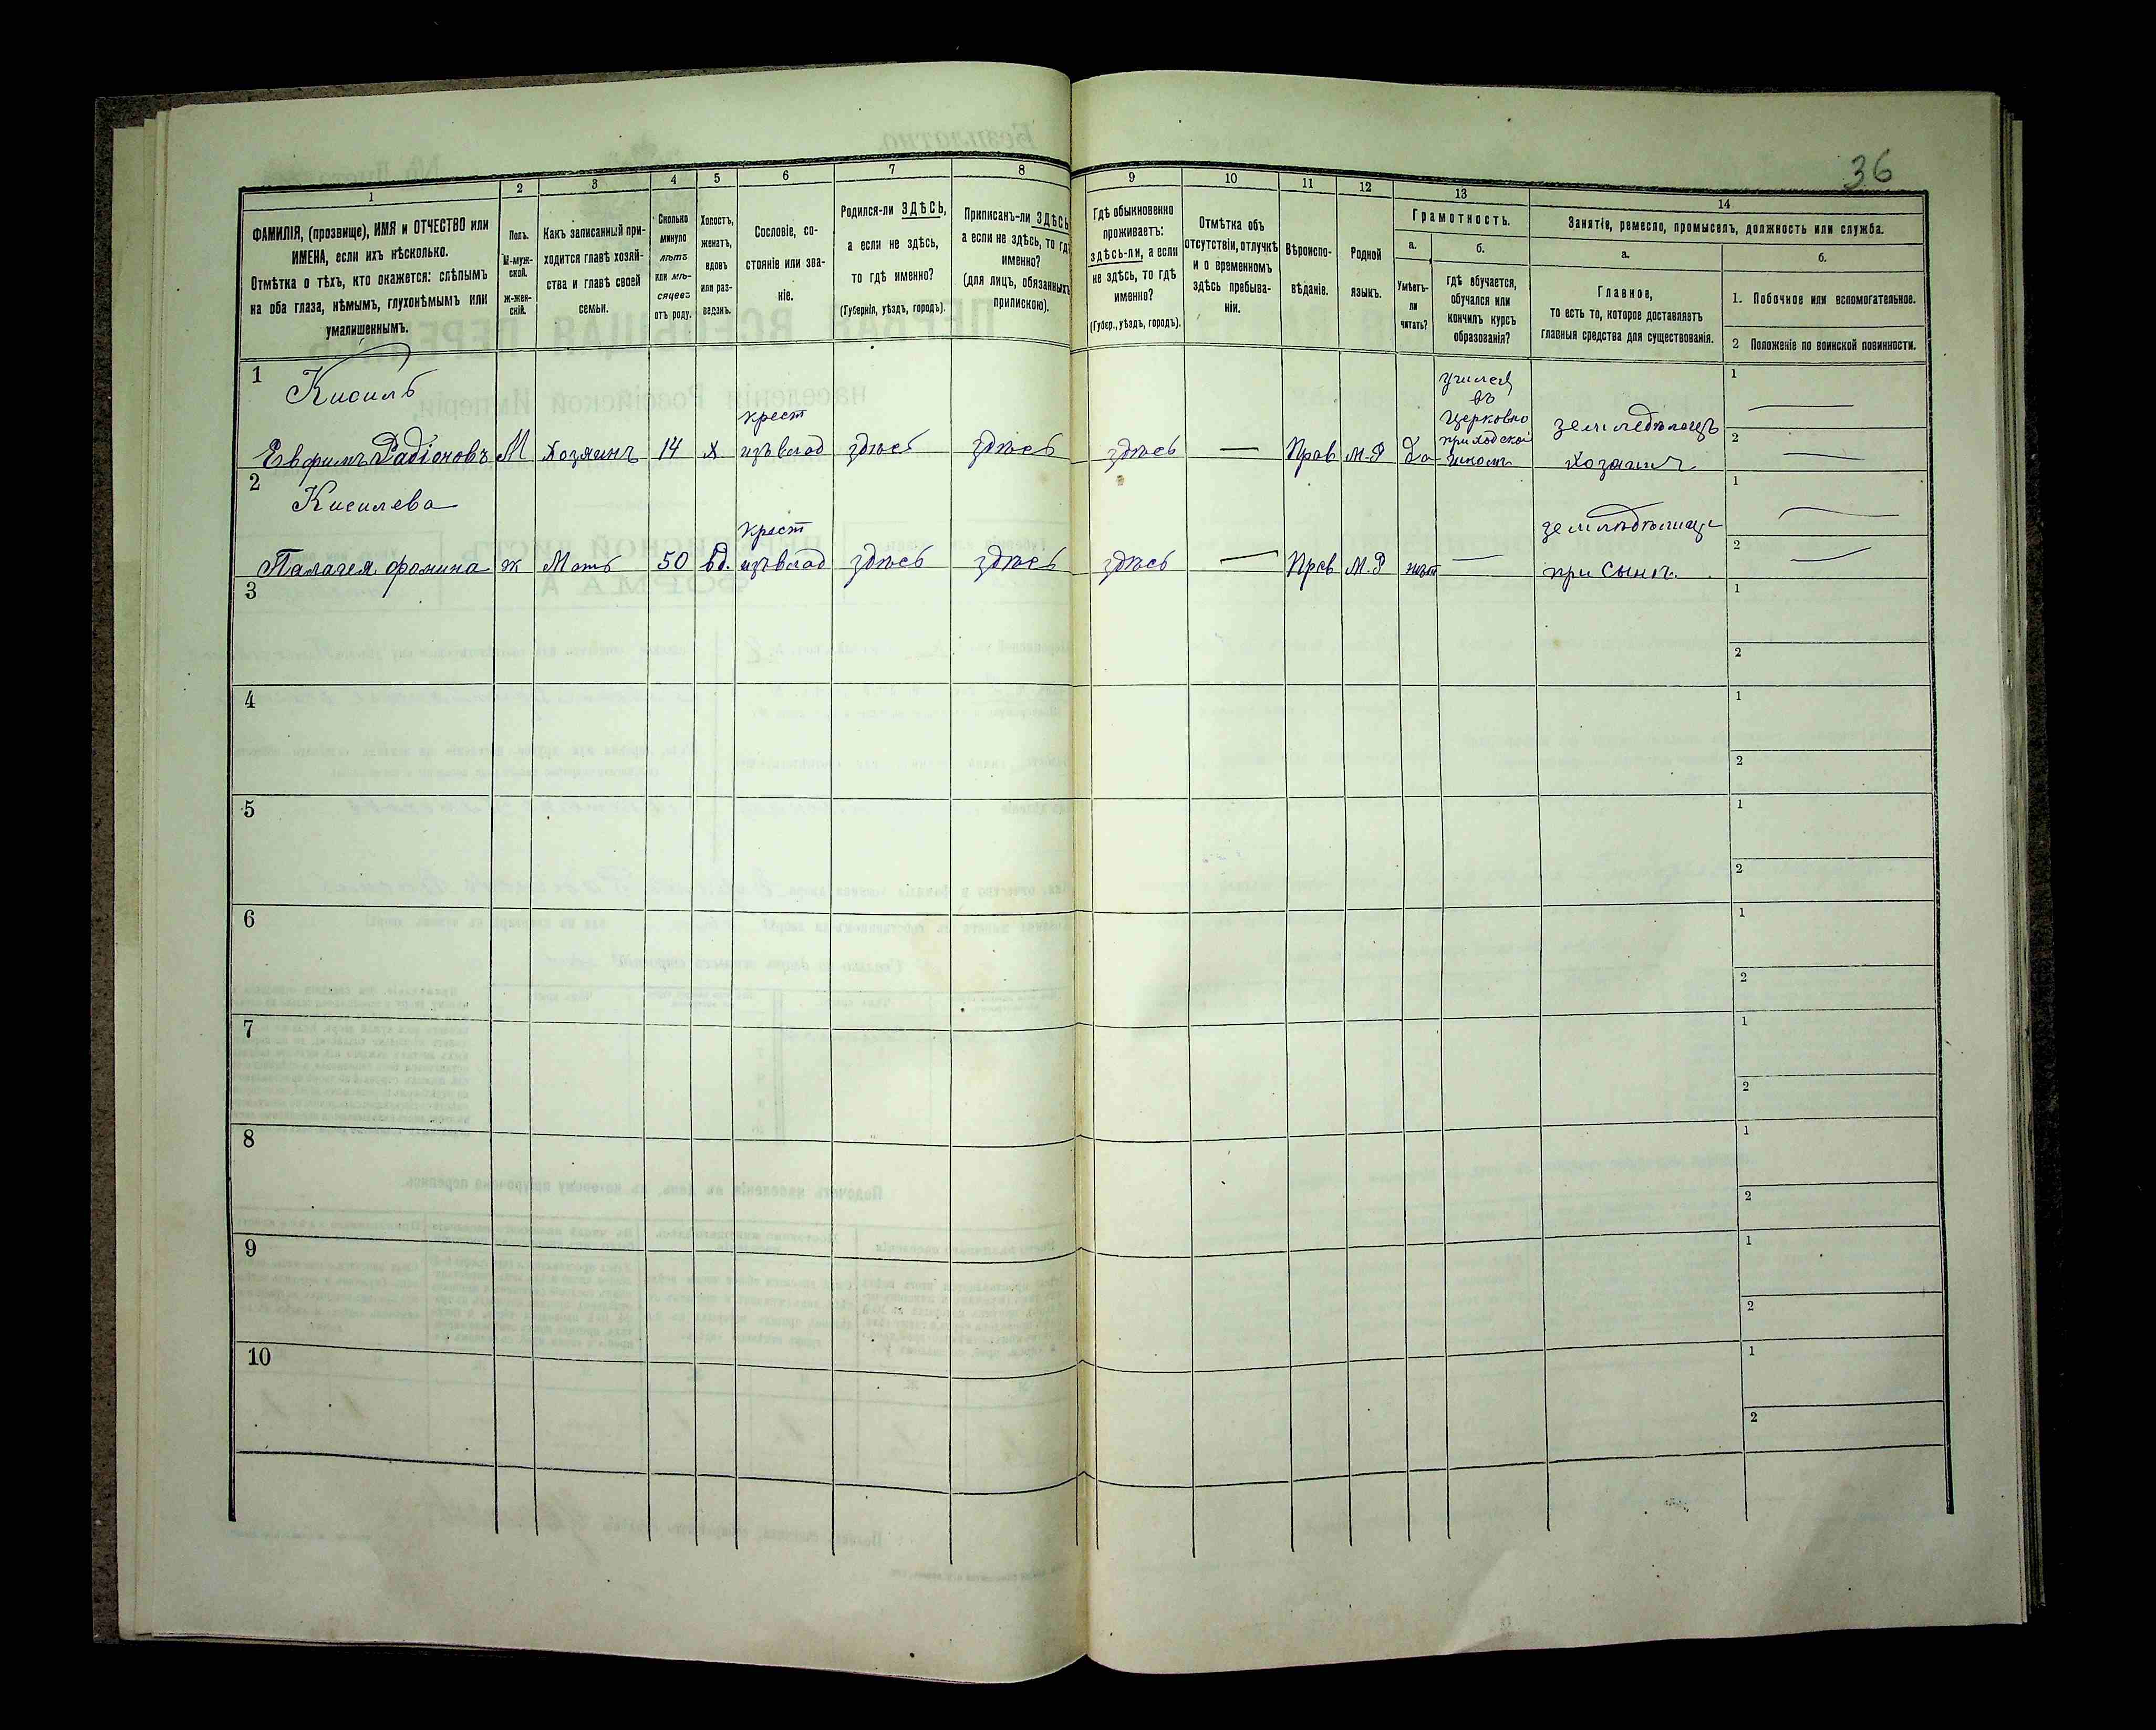 36
1
2
3
4
5
6
7
8
9
10
11
12
13
14
ФАМИЛІЯ, (прозвище), ИМЯ и ОТЧЕСТВО или
ИМЕНА, если ихъ нѣсколько.
Отмѣтка о тѣхъ, кто окажется: слѣпымъ
на оба глаза, нѣмымъ, глухонѣмымъ или
умалишеннымъ.
Полъ.
М-муж-
ской.
ж-жен-
скій.
Какъ записанный при-
ходится главѣ хозяй-
ства и главѣ своей
семьи.
Сколько
минуло
лѣтъ
или мѣ-
сяцевъ
отъ роду.
Холостъ,
женатъ,
вдовъ
или раз-
веденъ.
Сословіе, со-
стояніе или зва-
ніе.
Родился-ли ЗДѢСЬ,
а если не здѣсь,
то гдѣ именно?
(Губернія, уѣздъ, городъ).
Приписанъ-ли ЗДѢСЬ,
а если не здѣсь, то гдѣ
именно?
(для лицъ, обязанныхъ
припискою).
Гдѣ обыкновенно
проживаетъ:
здѣсь-ли, а если
не здѣсь, то гдѣ
именно?
(Губер., уѣздъ, городъ).
Отмѣтка объ
отсутствіи, отлучкѣ
и о временномъ
здѣсь пребыва-
ніи.
Вѣроиспо-
вѣданіе.
Родной
языкъ.
Грамотность.
а.
Умѣетъ-
ли
читать?
б.
гдѣ обучается,
обучался или
кончилъ курсъ
образованія?
Занятіе, ремесло, промыселъ, должность или служба.
а.
Главное,
то есть то, которое доставляетъ
главныя средства для существованія.
б.
1. Побочное или вспомогательное.
2 Положеніе по воинской повинности.
1
Кисиль
Евфимъ Радіоновъ
М
Хозяинъ
14
Х
крест
изъ влад
здѣсь
здѣсь
здѣсь
—
Прав
М.Р
Да
училсѧ
въ
церковно
приходской
школѣ
земледѣлецъ
хозяинъ
1 —
2 —
2
Кисилева
Палагея Фомина
ж
Мать
50
вд.
крест
изъ влад
здѣсь
здѣсь
здѣсь
—
Прав
М.Р
нѣт
—
земледѣлица
при сынѣ.
1 —
2 —
3
1
2
4
1
2
5
1
2
6
1
2
7
1
2
8
1
2
9
1
2
10
1
2